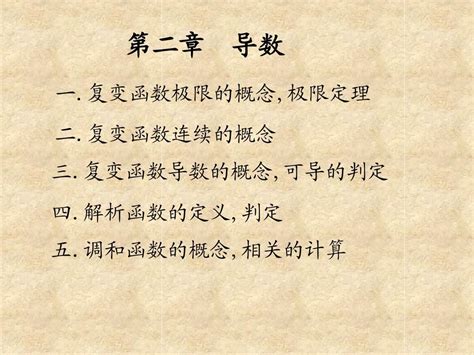 第二章 导数
一. 复变函数极限的概念, 极限定理
二. 复变函数连续的概念
三. 复变函数导数的概念, 可导的判定
四. 解析函数的定义, 判定
五. 调和函数的概念, 相关的计算